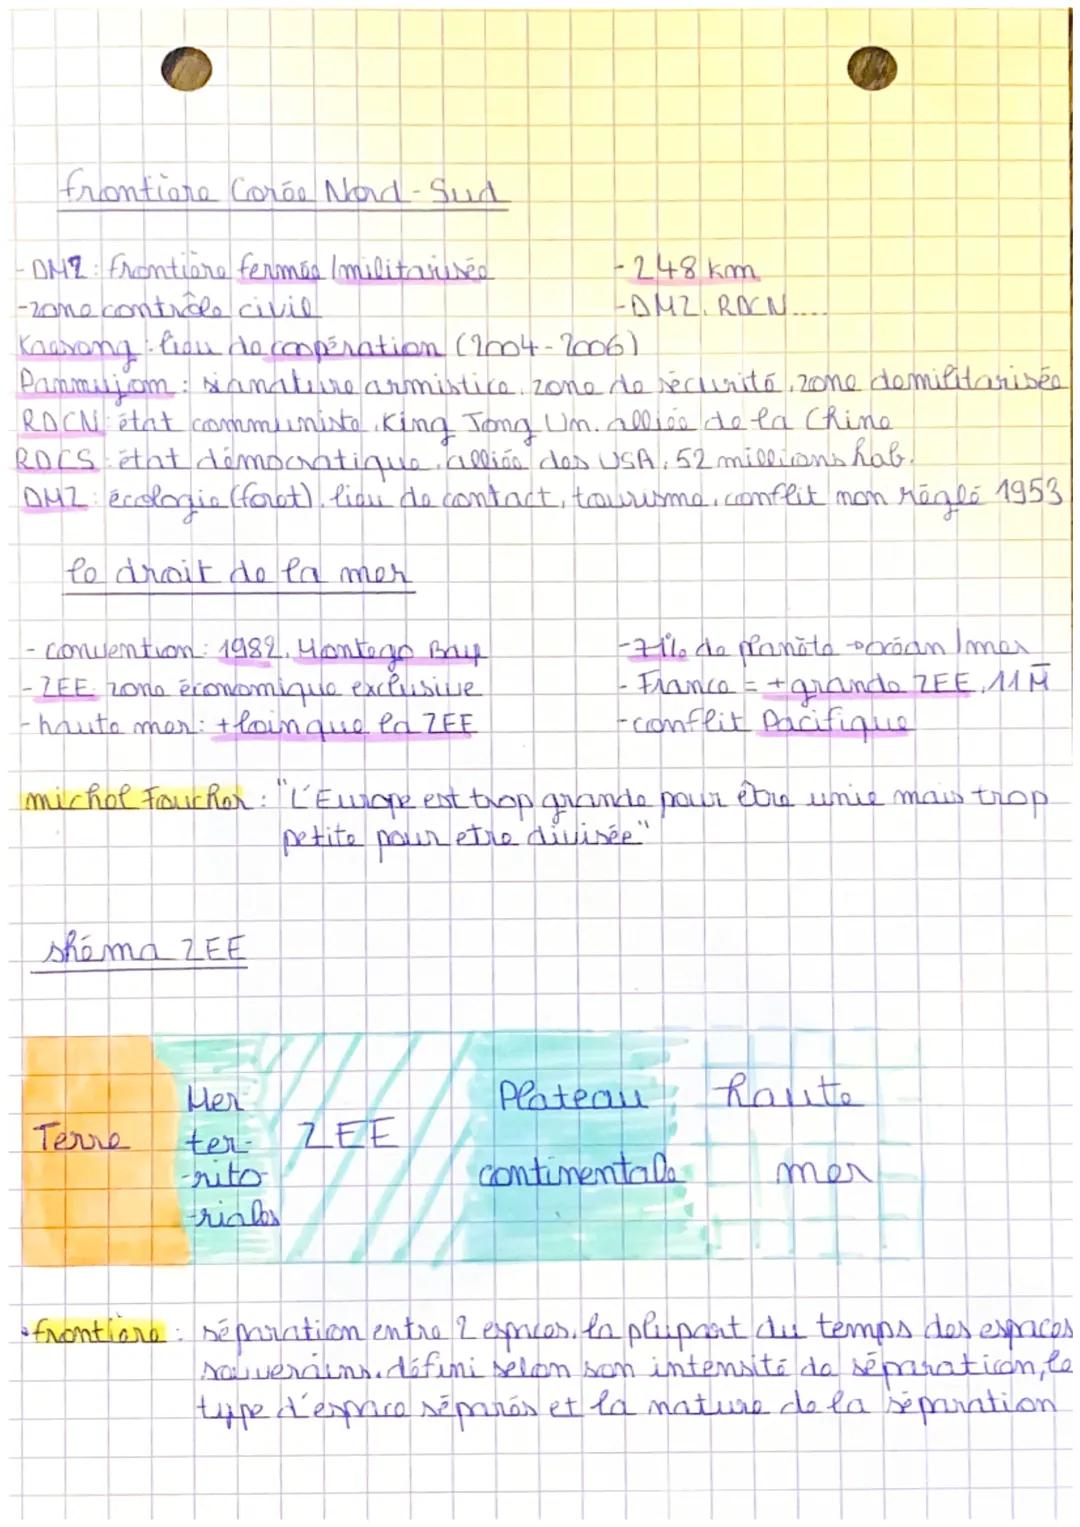 frontière Corée Nord-Sud
- DMZ : frontière fermée / militarisée
- 248 km
- zone contrôle civil
- DMZ, RDCN....
Kaesong : lieu de coopération (2004-2006)
Panmujom : signature armistice, zone de sécurité, zone demilitarisée
RDCN : état communiste, King Jong Um. alliée de la Chine
RDCS : état démocratique, alliée des USA, 52 millions hab.
DMZ : écologie (foret), lieu de contact, tourisme, conflit non réglé 1953
le droit de la mer
- convention : 1982, Montego Bay
- 71% de planète → océan / mer
- ZEE zone économique exclusive
- France = + grande ZEE, 11 M
- haute mer : + loin que la ZEE
- conflit Pacifique
michel Foucher : "L'Europe est trop grande pour être unie mais trop
petite pour etre divisée"
shéma ZEE
Terre
Mer
ter-
-rito-
-riales
ZEE
Plateau
continentale
haute
mer
• frontière : séparation entre 2 espaces, la plupart du temps des espaces
souverains. défini selon son intensité de séparation, le
type d'espace séparés et la nature de la séparation